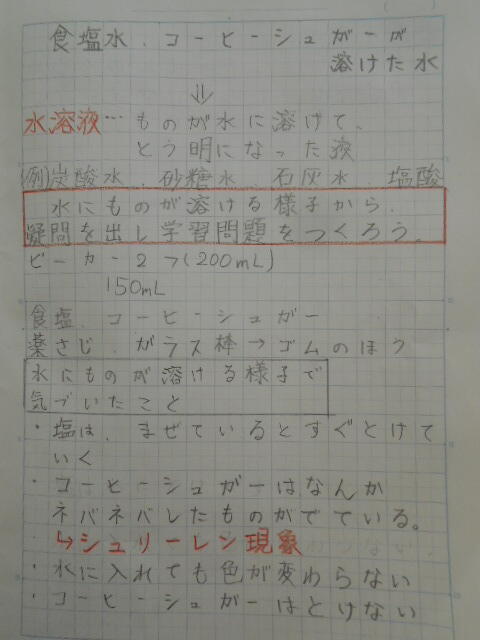 食塩水、コーヒーシュガーが
溶けた水
⇓
水溶液…ものが水に溶けて、
とう明になった液
(例)炭酸水、砂糖水、石灰水 塩酸
水にものが溶ける様子から、
疑問を出し学習問題をつくろう。
ビーカー2つ(200mL)
150mL
食塩、コーヒーシュガー
薬さじ、ガラス棒→ゴムのほう
水にものが溶ける様子で
気づいたこと
・塩は、まぜているとすぐとけて
いく
・コーヒーシュガーはなんか
ネバネバしたものがでている。
↳シュリーレン現象
・水に入れても色が変わらない
・コーヒーシュガーはとけない